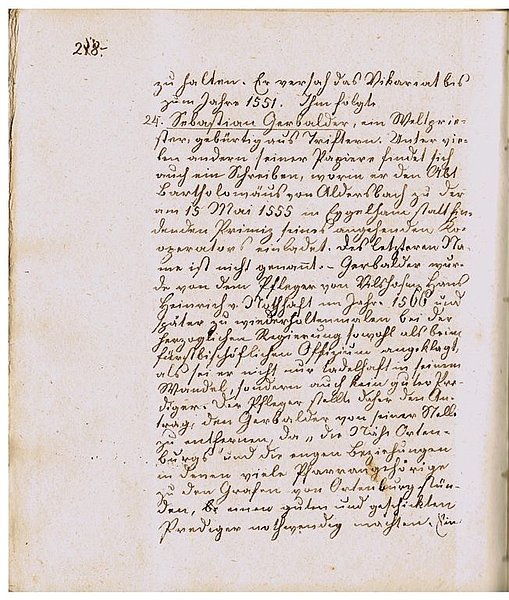 218.
zu halten. Er versah das Vikariat bis
zum Jahre 1551. Ihm folgte
24. Sebastian Gerbalder, ein Weltprie=
ster, gebürtig aus Triftern. Unter vie=
len andern seiner Papiere findet sich
auch ein Schreiben, worin er den Abt
Bartholomäus von Aldersbach zu der
am 15 Mai 1555 in Eggelham stattfin=
denden Primiz seines angehenden Ko=
operators einladet. Des letzteren Na=
me ist nicht genannt. – Gerbalder wur=
de von dem Pfleger von Vilshofen Hans
Heinrich v. Nothhaft im Jahr. 1566 und
später zu wiederholtenmalen bei der
herzoglichen Regierung sowohl als beim
fürstbischöflichen Offizium angeklagt,
als sei er nicht nur tadelhaft in seinem
Wandel, sondern auch kein guter Pre=
diger. Der Pfleger stellte daher den An=
trag, den Gerbalder von seiner Stelle
zu entfernen, da „die Nähe Orten=
burgs und die engen Beziehungen
in denen viele Pfarrangehörige
zu den Grafen von Ortenburg stün=
den, einen guten und geschickten
Prediger nothwendig machten. Ein